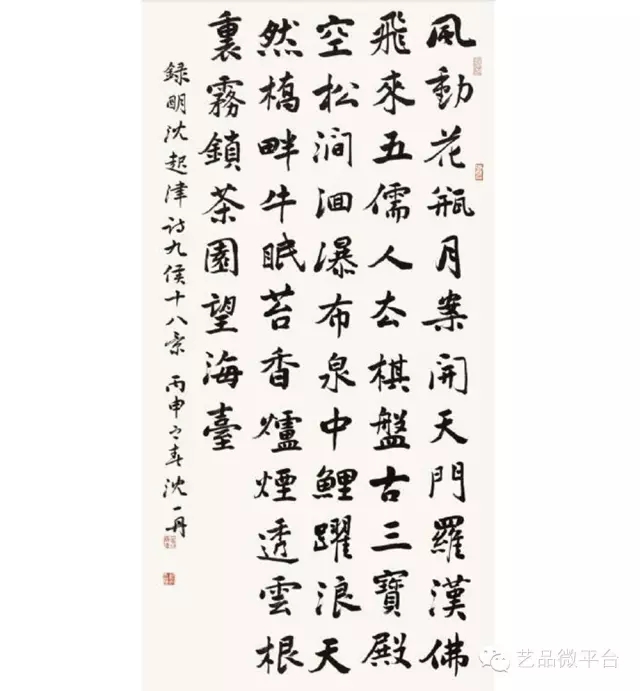 風動花瓶月案開天門羅漢佛
飛來五儒人去棋盤古三寶殿
空松澗洄瀑布泉中鯉躍浪天
然橋畔牛眠苔香爐煙透雲根
裏霧鎖茶園望海臺
録明沈起津詩九侯十八景 丙申之春沈一丹
艺品微平台